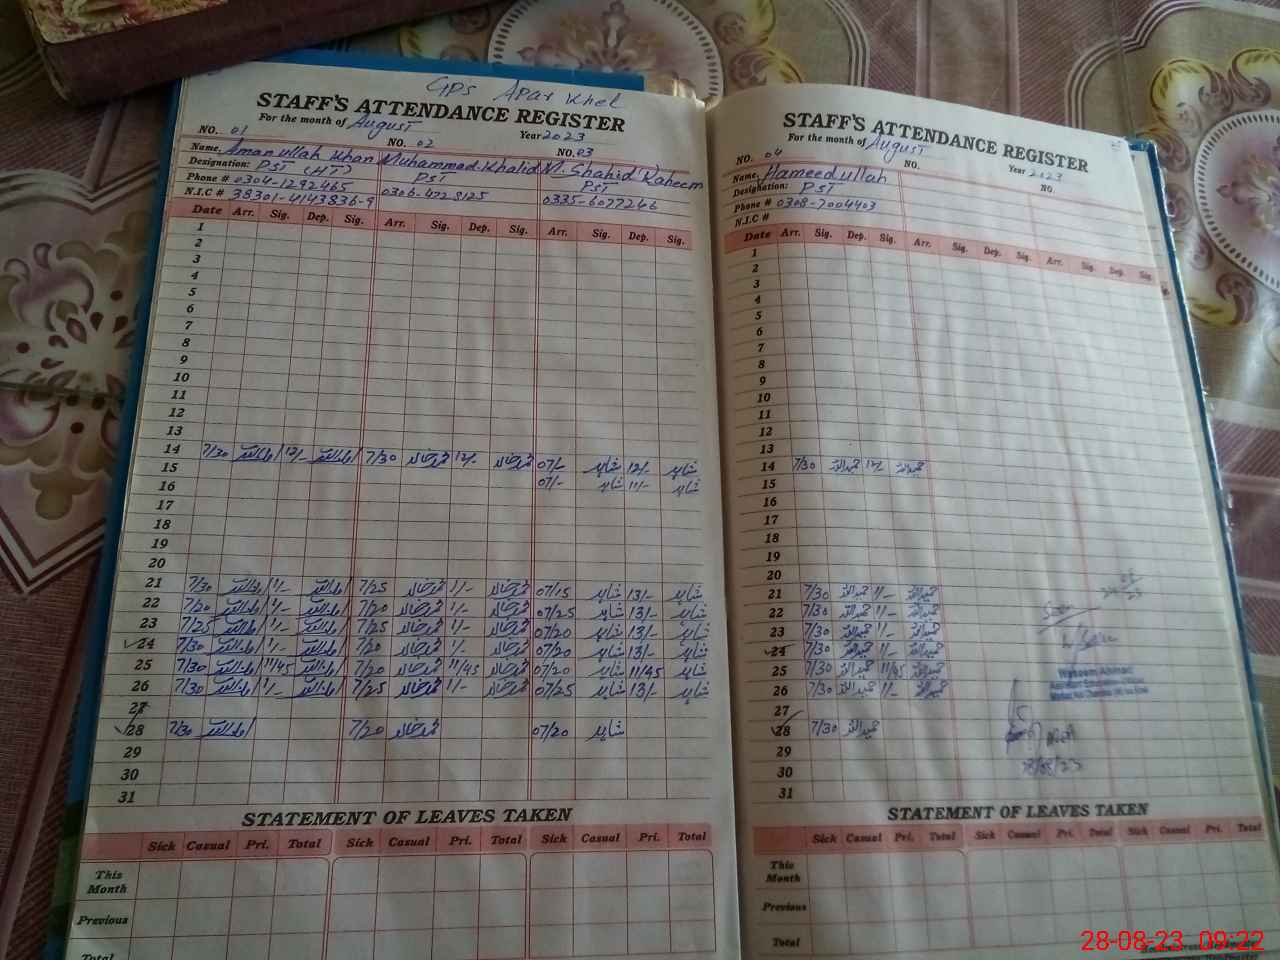 GPS Apar Khel
STAFF'S ATTENDANCE REGISTER
For the month of August Year 2023
NO. 01 NO. 02 NO. 03
Name, Aman ullah Khan Muhammad Khalid M. Shahid Raheem
Designation: PST (HT) PST PST
Phone # 0304-1292465 0306-4728125 0335-6077246
N.I.C # 38301-4143836-9
Date Arr. Sig. Dep. Sig. Arr. Sig. Dep. Sig. Arr. Sig. Dep. Sig.
1
2
3
4
5
6
7
8
9
10
11
12
13
14 7/30 امان اللہ 12/- امان اللہ 7/30 محمد خالد 12/- محمد خالد 07/- شاہد 12/- شاہد
15 07/- شاہد 11/- شاہد
16
17
18
19
20
21 7/30 امان اللہ 1/- امان اللہ 7/25 محمد خالد 1/- محمد خالد 07/15 شاہد 13/- شاہد
22 7/20 امان اللہ 1/- امان اللہ 7/20 محمد خالد 1/- محمد خالد 07/25 شاہد 13/- شاہد
23 7/25 امان اللہ 1/- امان اللہ 7/25 محمد خالد 1/- محمد خالد 07/20 شاہد 13/- شاہد
24 7/30 امان اللہ 1/- امان اللہ 7/20 محمد خالد 1/- محمد خالد 07/20 شاہد 13/- شاہد
25 7/30 امان اللہ 11/45 امان اللہ 7/20 محمد خالد 11/45 محمد خالد 07/20 شاہد 11/45 شاہد
26 7/30 امان اللہ 1/- امان اللہ 7/25 محمد خالد 1/- محمد خالد 07/25 شاہد 13/- شاہد
27
28 7/30 امان اللہ 7/20 محمد خالد 07/20 شاہد
29
30
31
STATEMENT OF LEAVES TAKEN
Sick Casual Pri. Total Sick Casual Pri. Total Sick Casual Pri. Total
This Month
Previous
Total
STAFF'S ATTENDANCE REGISTER
For the month of August Year 2023
NO. 04 NO. NO.
Name, Hameed ullah
Designation: PST
Phone # 0308-7004403
N.I.C #
Date Arr. Sig. Dep. Sig. Arr. Sig. Dep. Sig. Arr. Sig. Dep. Sig.
1
2
3
4
5
6
7
8
9
10
11
12
13
14 7/30 حمید اللہ 12/- حمید اللہ
15
16
17
18
19
20
21 7/30 حمید اللہ 1/- حمید اللہ
22 7/30 حمید اللہ 1/- حمید اللہ
23 7/30 حمید اللہ 1/- حمید اللہ
24 7/30 حمید اللہ 1/- حمید اللہ
25 7/30 حمید اللہ 11/45 حمید اللہ
26 7/30 حمید اللہ 1/- حمید اللہ
27
28 7/30 حمید اللہ
29
30
31
28/08/23
STATEMENT OF LEAVES TAKEN
Sick Casual Pri. Total Sick Casual Pri. Total Sick Casual Pri. Total
This Month
Previous
Total
28-08-23 09:22